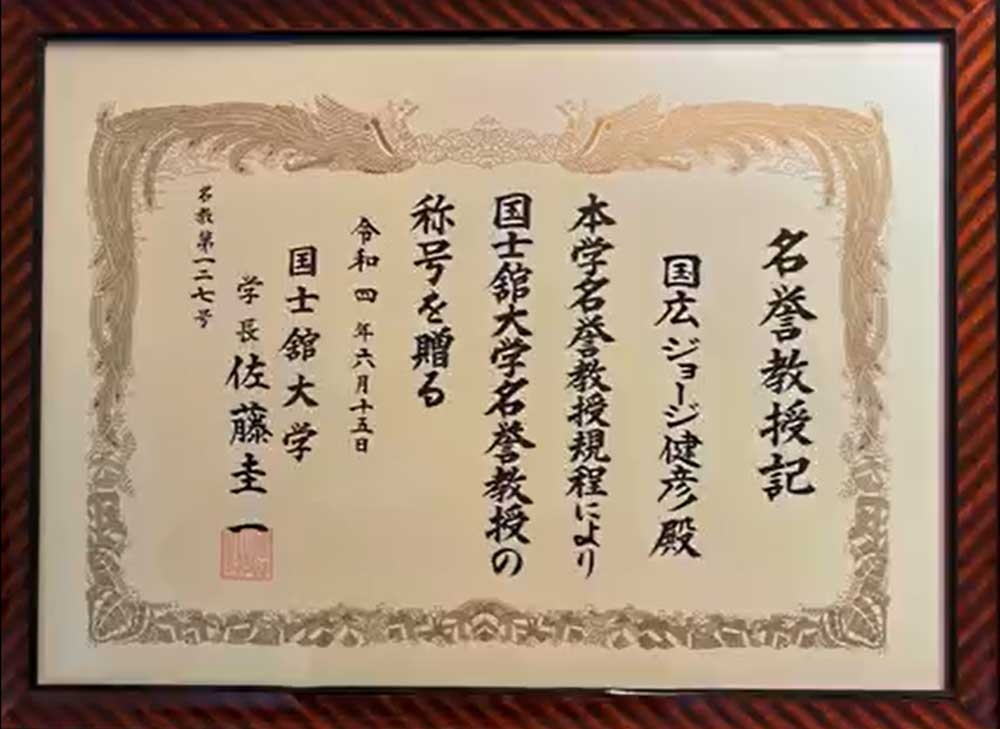 名誉教授記
国広ジョージ健彦殿
本学名誉教授規程により
国士舘大学名誉教授の
称号を贈る
令和四年六月十五日
国士舘大学
学長佐藤圭一
名教第一二七号